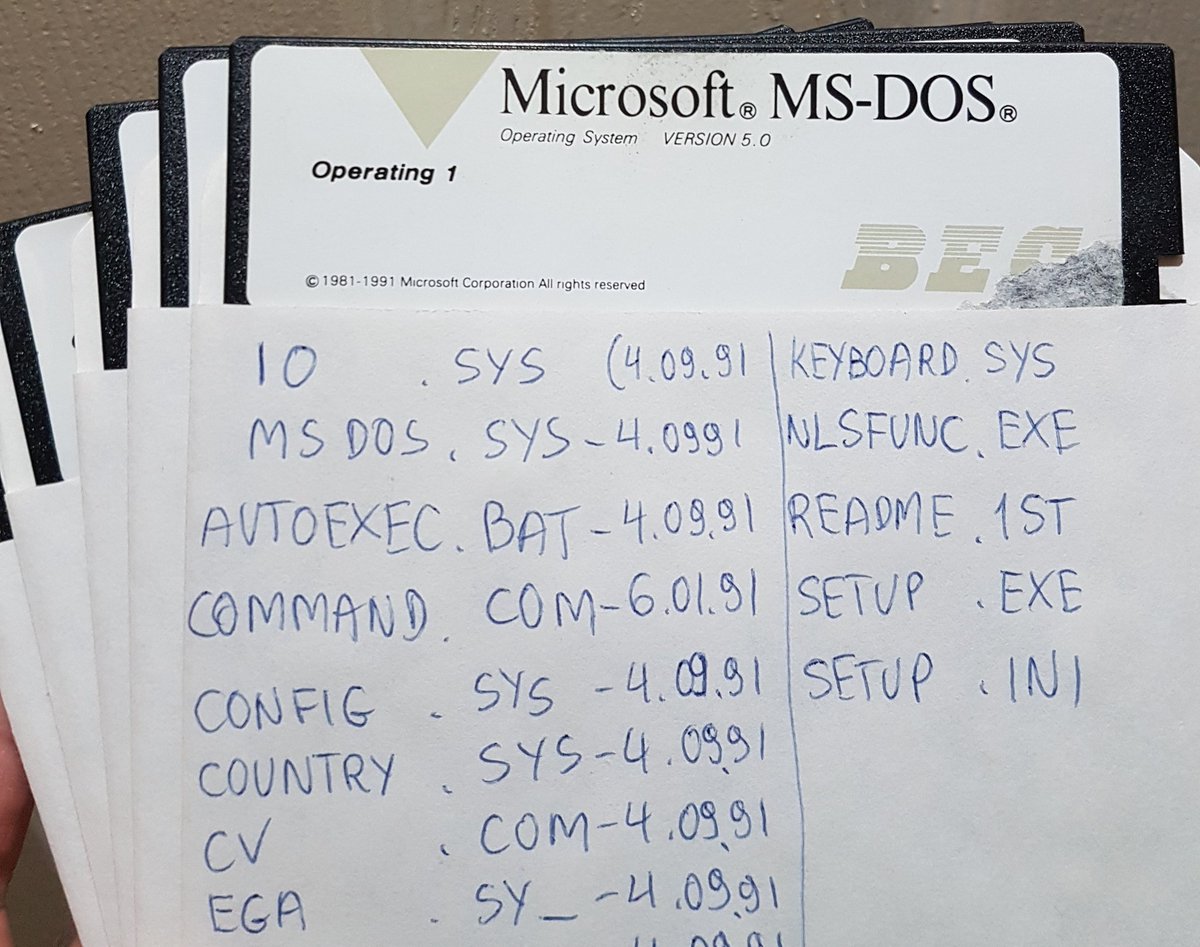 Microsoft® MS-DOS®
Operating System VERSION 5.0
Operating 1
©1981-1991 Microsoft Corporation All rights reserved
IO . SYS (4.09.91
MSDOS. SYS - 4.0991
AUTOEXEC. BAT - 4.09.91
COMMAND. COM - 6.01.91
CONFIG . SYS - 4.09.91
COUNTRY . SYS - 4.09.91
CV . COM - 4.09.91
EGA . SY_ - 4.09.91
KEYBOARD. SYS
NLSFUNC. EXE
README. 1ST
SETUP . EXE
SETUP . INI